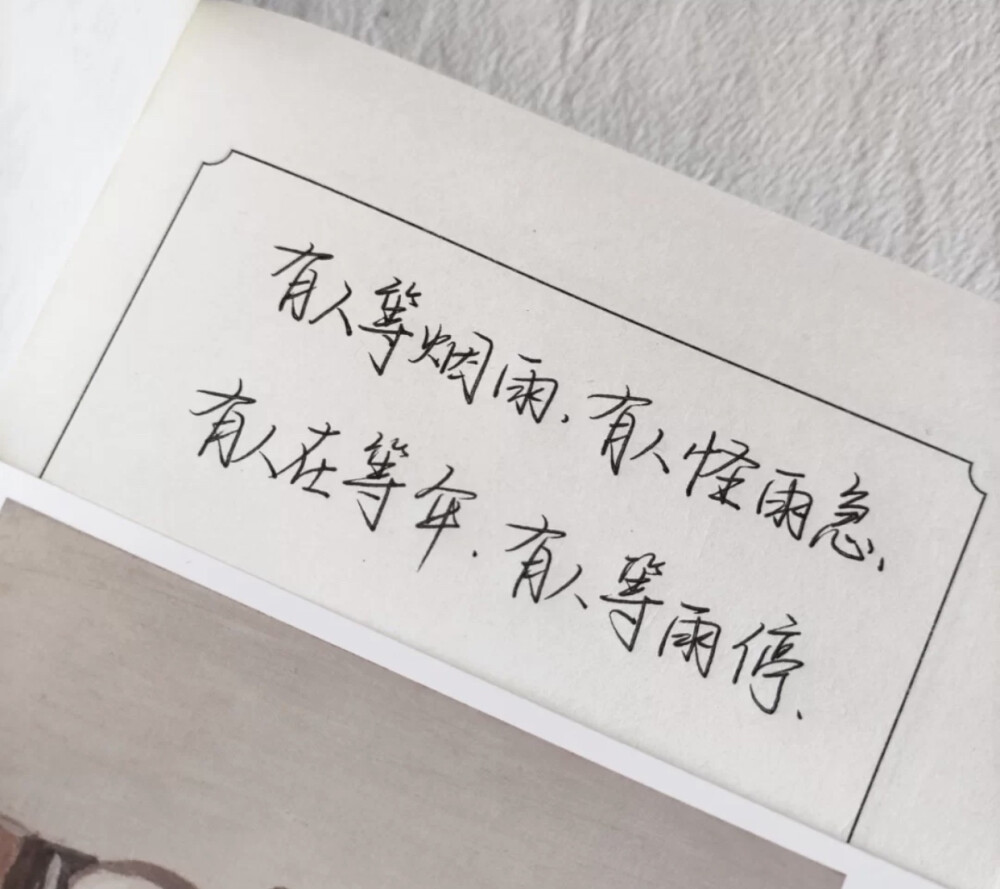 有人等烟雨、有人怪雨急、
有人在等伞、有人等雨停、